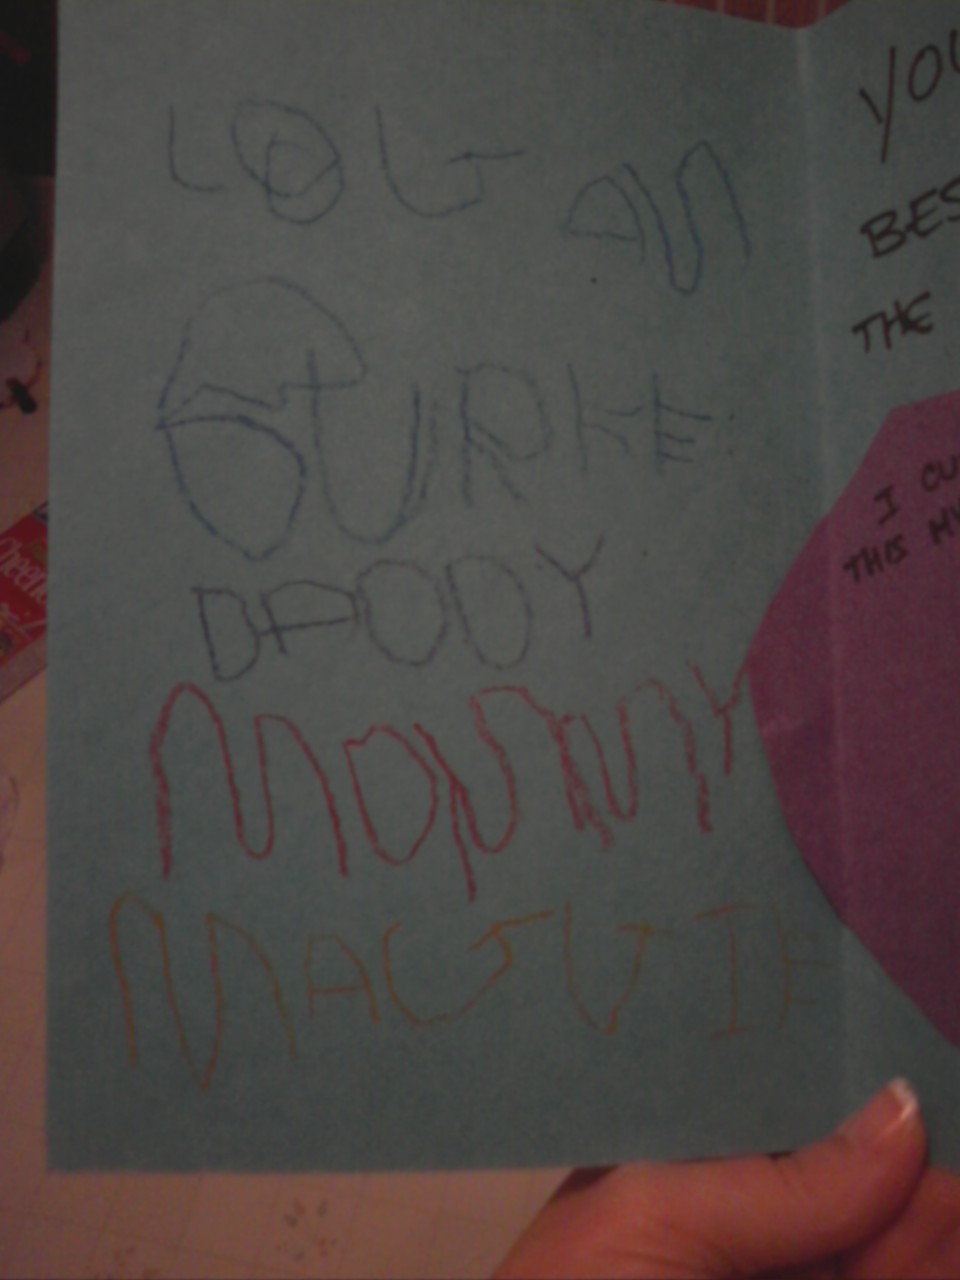 LOGAN
BURKE
DADDY
MOMMY
MAGGIE
YOU
BES
THE
I CU
THIS MY
Cheerie